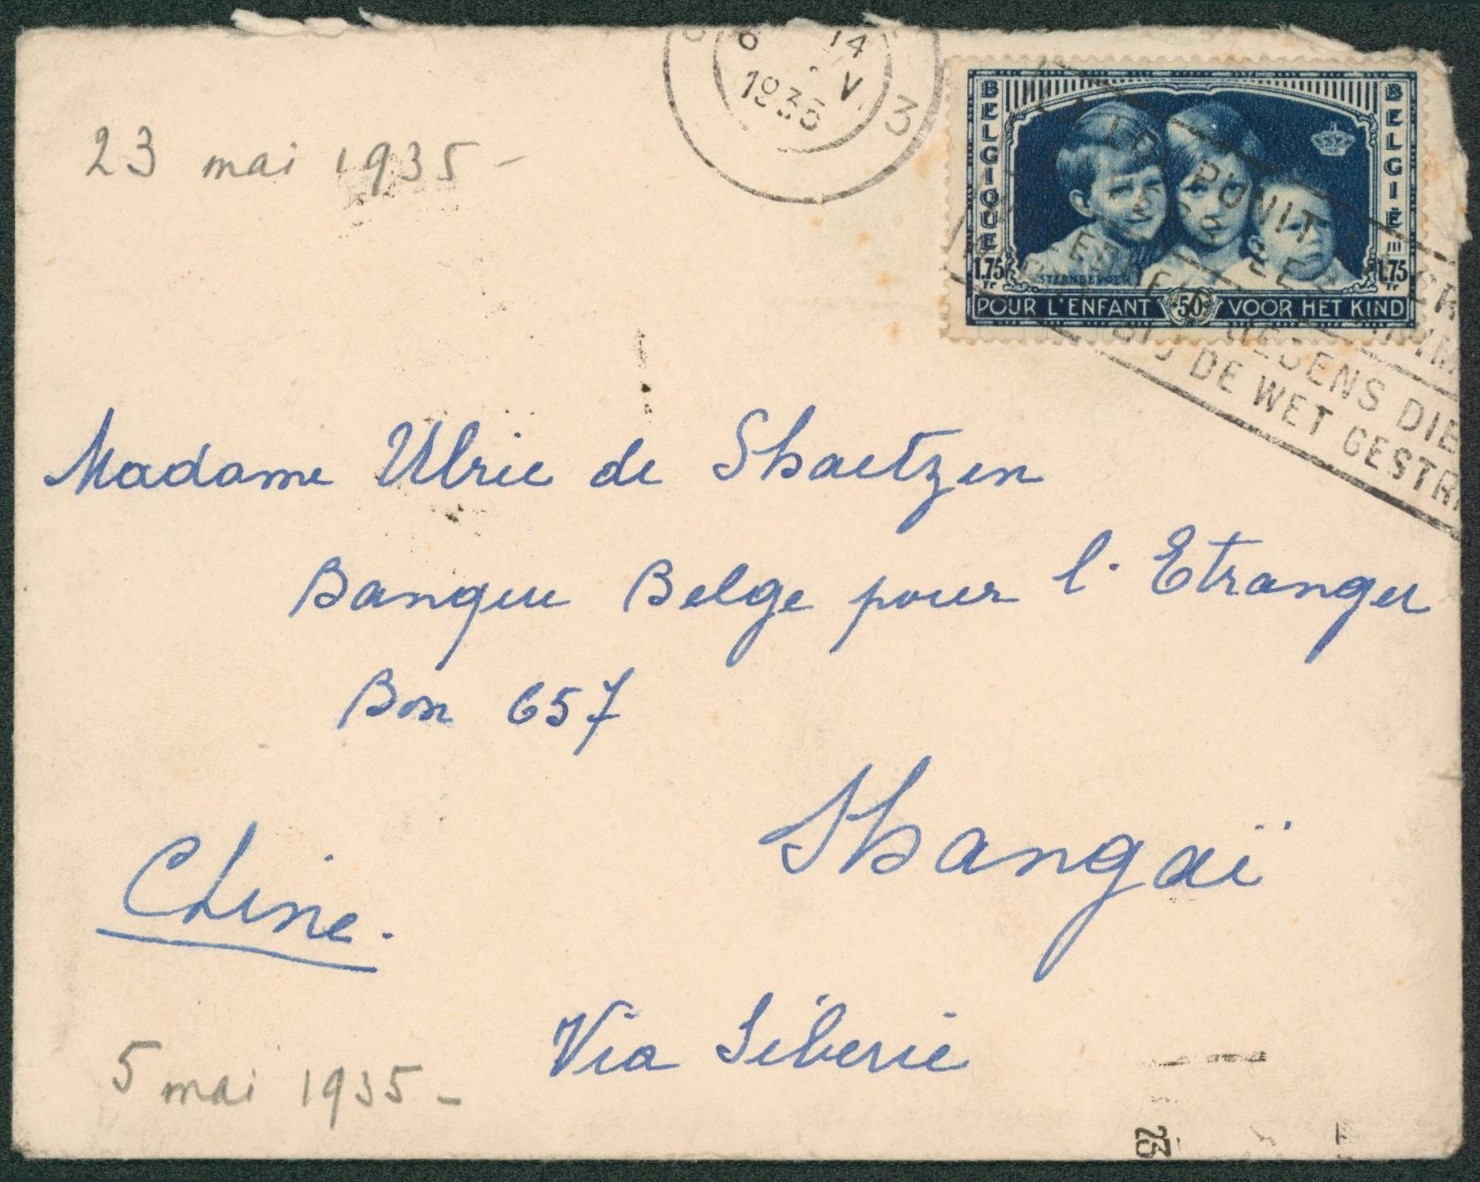 6 14
V
1935
3
23 mai 1935 -
BELGIQUE
BELGIË
1.75 Fr
1.75 Fr
POUR L'ENFANT 50c VOOR HET KIND
LOI PUNIT
JEGENS DIE
DE WET GESTR
Madame Ulric de Shaetzen
Banque Belge pour l'Etranger
Box 657
Shangaï
Chine.
Via Sibérie
5 mai 1935 -
23